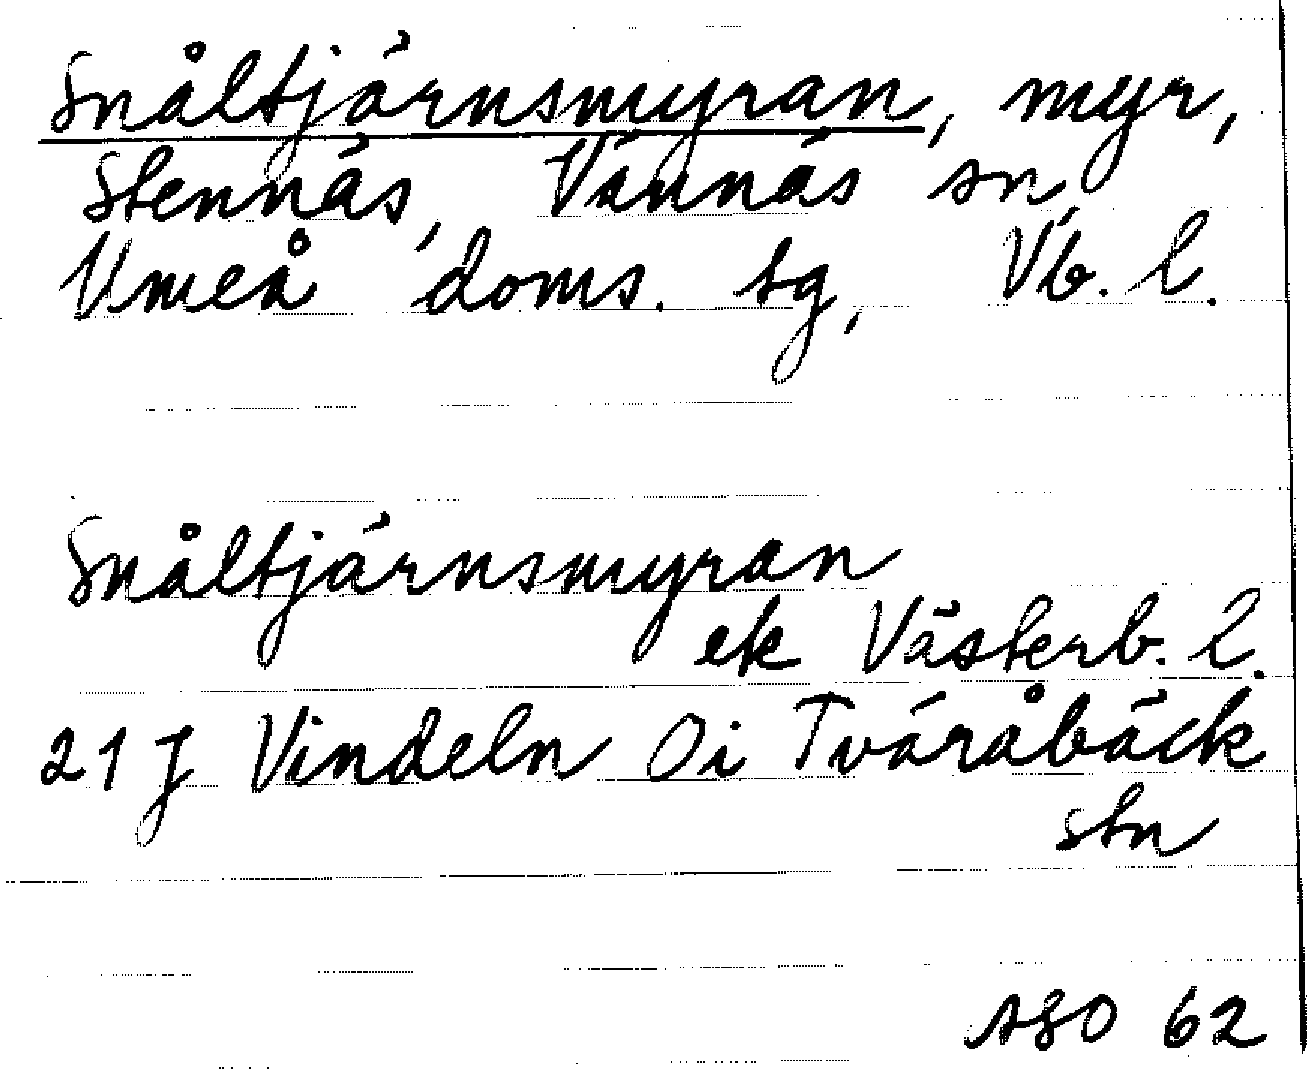 Snåltjärnsmyran, myr,
Stennäs, Vännäs sn,
Umeå doms. sg, Vb. l.
Snåltjärnsmyran
ek Västerb. l.
21 J Vindeln 0i Tväråbäck
stn
ASO 62